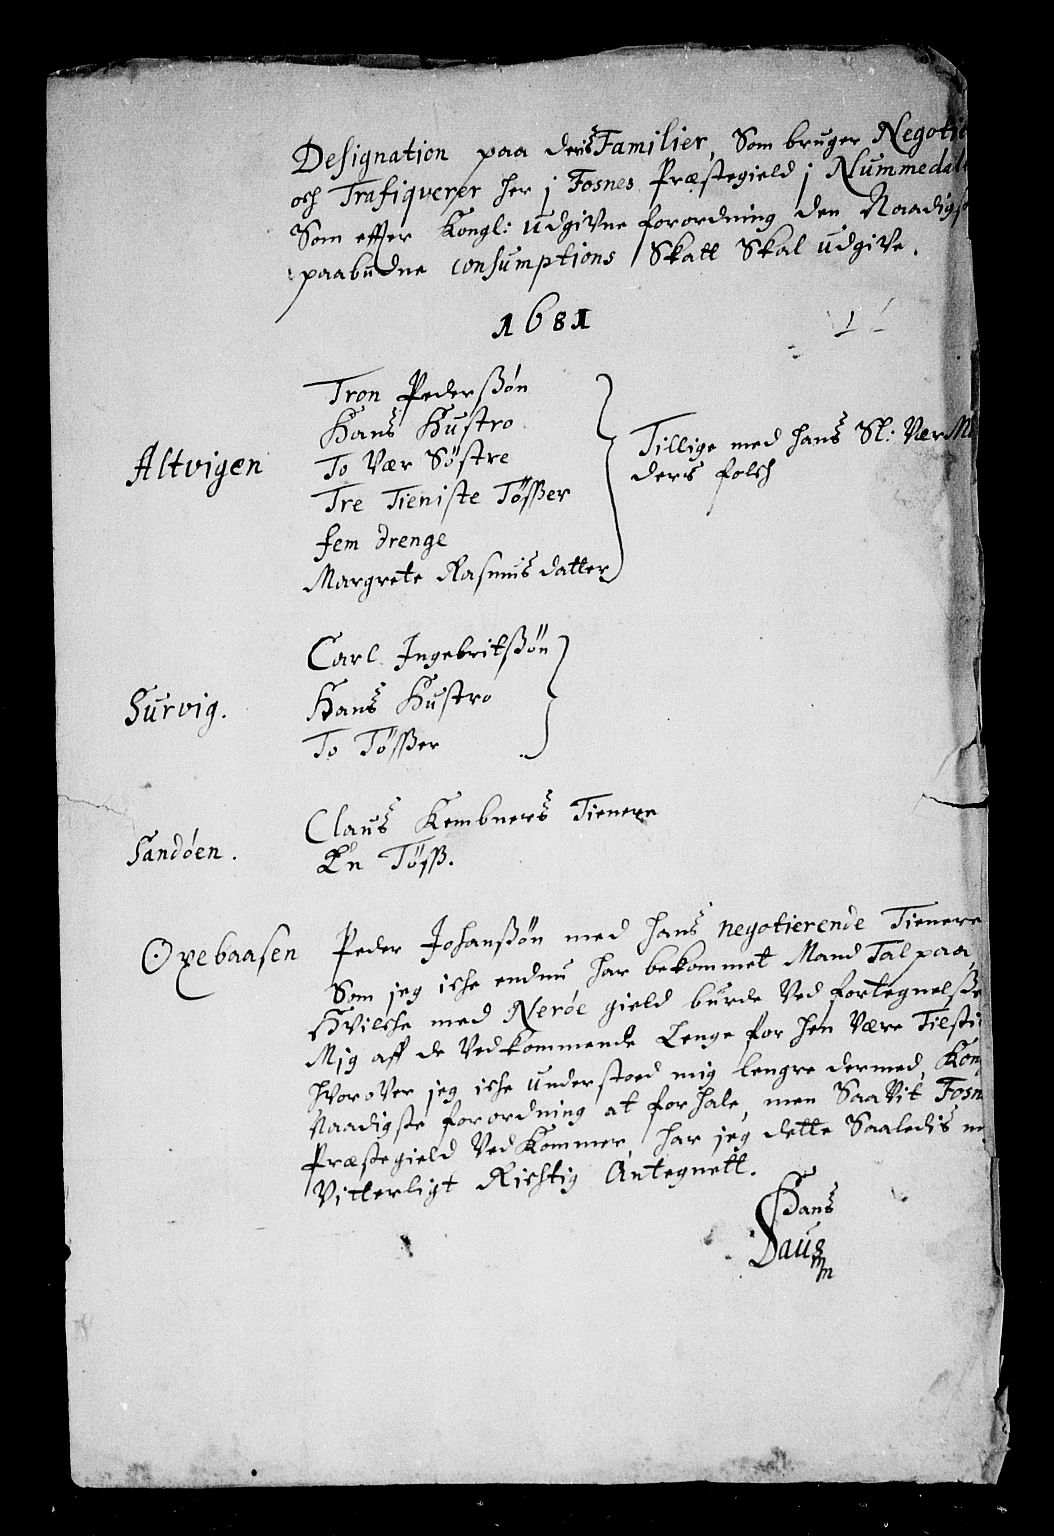 Designation paa deris Familier, Som bruger Negotie
och Trafiqverer her j Fosnes Præstegield j Nummedale
Som effter Kongl: udgivne forordning den Naadigst
paabudne Consumptions Skatt Skal udgive.
1681
Altvigen
Tron Pederßøn
Hans Hustro
To Vær Søstre
Tre Tieniste Tøßer
fem drenge
Margrete Rasmus datter
Tillige med hans Sl: Vær Mo
ders folch
Survig.
Carl Ingebritßøn
Hans Hustro
To Tøßer
Sandøen.
Claus Kembners Tienere
En Tøß.
Oxebaasen
Peder Johanßøn med hans negotierende Tienere
Som jeg iche endnu har bekommet Mand Tal paa
Hvilche med Nerøe gield burde Ved fortegnelße
Mig aff de Vedkommende Lenge for hen Være Tilsti
hvorover jeg iche understoed mig lengre dermed Kon
Naadigste forordning at forhale, men Saa Vit Fosn
Præstegield Ved Kommer, har jeg dette Saaledis
Vitterligt Richtig Antegnett.
Hans
Daus